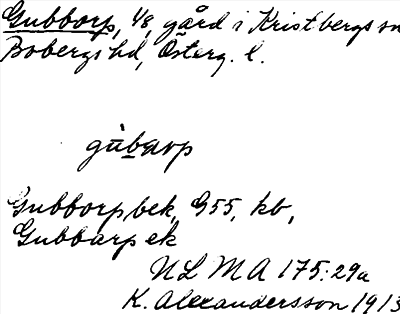 Gubborp, 1/8, gård i Kristbergs sn
Bobergs hd, Österg. l.
gùbarp
Gubborp bek, G55, kb,
Gubbarp ek
ULMA 175:29a
K. Alexandersson 1913